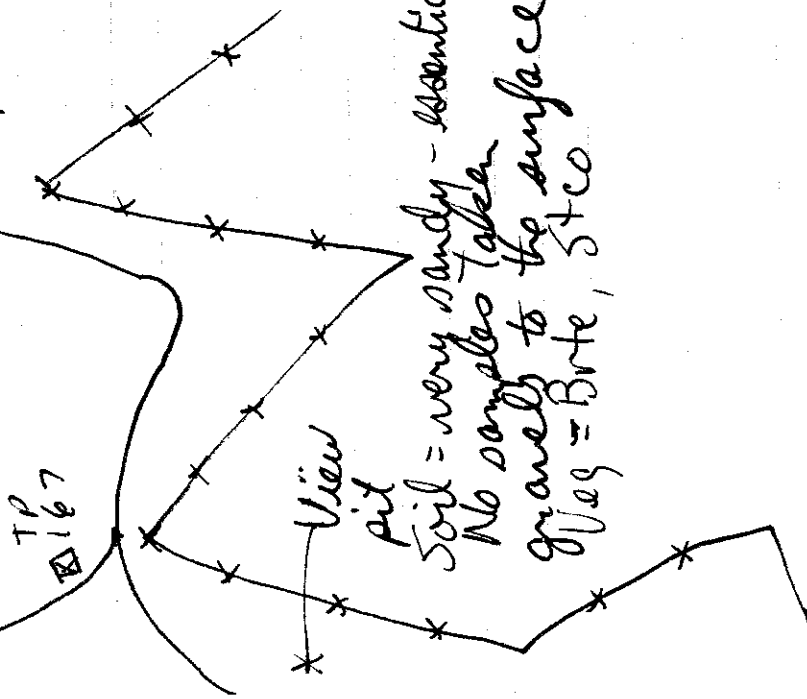 TP
167
View
pit
Soil = very sandy - essentia
No samples taken
gravels to the surface
Veg = Brte, Stco